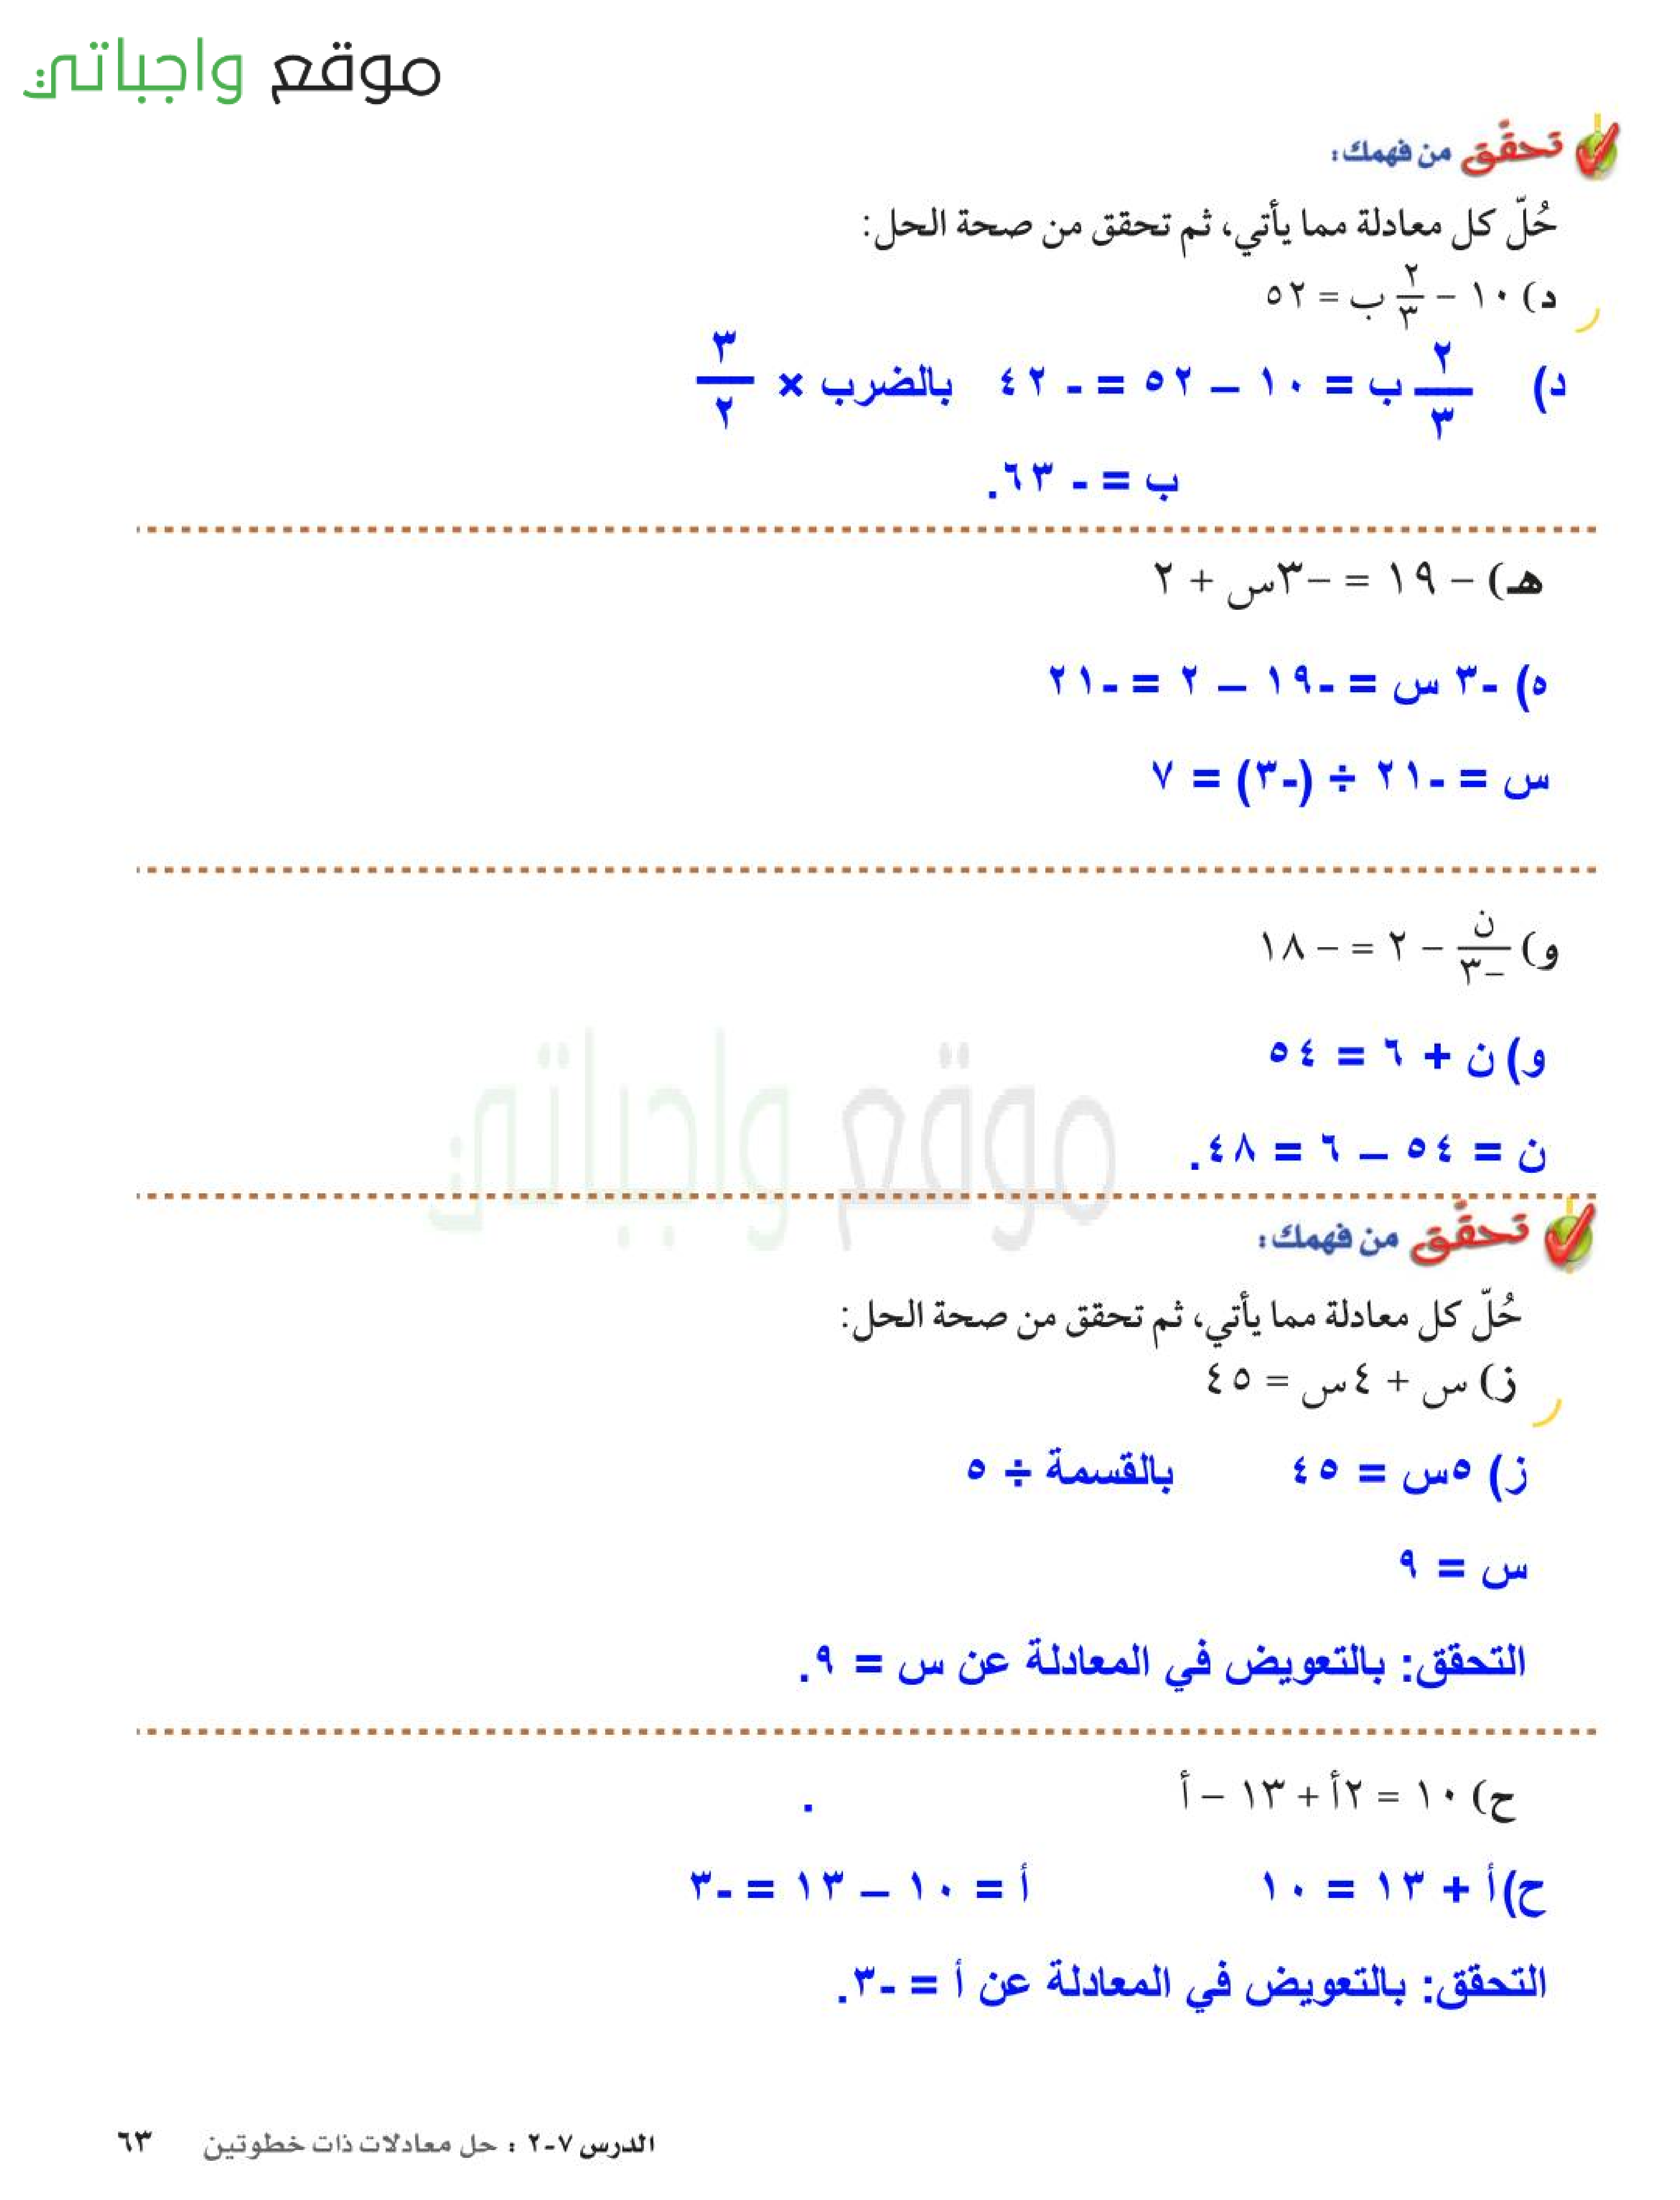 موقع واجباتي
تحقق من فهمك:
حُلّ كل معادلة مما يأتي، ثم تحقق من صحة الحل:
د) ١٠ – ٢/٣ ب = ٥٢
د) ٢/٣ ب = ١٠ – ٥٢ = - ٤٢ بالضرب × ٣/٢
ب = - ٦٣.
هـ) – ١٩ = –٣س + ٢
ه) -٣ س = -١٩ – ٢ = -٢١
س = -٢١ ÷ (-٣) = ٧
و) ن/–٣ – ٢ = – ١٨
و) ن + ٦ = ٥٤
ن = ٥٤ – ٦ = ٤٨.
موقع واجباتي
تحقق من فهمك:
حُلّ كل معادلة مما يأتي، ثم تحقق من صحة الحل:
ز) س + ٤س = ٤٥
ز) ٥س = ٤٥ بالقسمة ÷ ٥
س = ٩
التحقق: بالتعويض في المعادلة عن س = ٩.
ح) ١٠ = ٢أ + ١٣ – أ .
ح) أ + ١٣ = ١٠ أ = ١٠ – ١٣ = -٣
التحقق: بالتعويض في المعادلة عن أ = -٣.
الدرس ٧-٢ : حل معادلات ذات خطوتين ٦٣